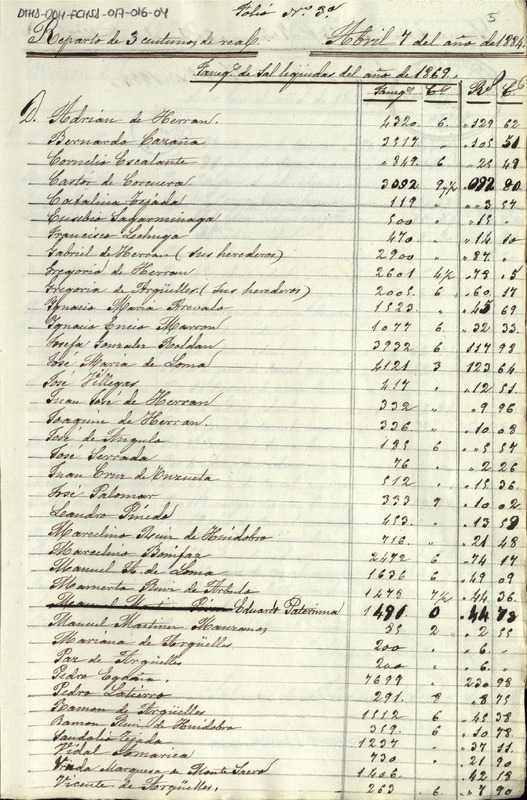 DTHS-001-FCHSD-017-016-04
Folio Nº 3º 5
Reparto de 3 centimos de real. Abril 7 del año de 1884.
Faneg.s de Sal liquidas del año de 1869.
Faneg.s C.s R.s C.s
D. Adrián de Herran. 4320. 6. " 129 62
Bernardo Cazaña 3517 " " 105 51
Cornelio Escalante " 849. 6 " 25 48
Castór de Corcuera 3092 9 1/2 . 092 80
Catalina Tejada 119 " " " 3 57
Eusebio Sagarminaga 500 " " 15 "
Francisco Lechuga 470. " " 14 10
Gabriel de Herran (Sus herederos) 2900 " " 87 "
Gregorio de Herran 2601 4 1/2 " 78 . 5
Gregoria de Argüelles (Sus herederos) 2005. 6 " 60. 17
Ignacio Maria Arevalo 1523 " . 45 69
Ignacio Encio Marron 1077 6 " 32 33.
Josefa Gonzalez Roldan 3932 6 117 98
José Maria de Loma 4121 3 123 64
José Villegas 417 " " 12 51.
Juan José de Herran 332 " " 9 96
Joaquin de Herran 336 " " 10 08
José de Angulo 185 6 " 5 57
José Serrada 76 " " 2 26
Juan Cruz de Unzueta 512 " " 15 36.
José Palomar 333 9 " 10 02
Leandro Pinedo 453. " " 13 58
Marcelino Ruiz de Huidobro 716. " " 21 48
Marcelino Bonifaz 2472 6 " 74 17
Manuel A. de Loma 1636 6 " 49 09
Mamerta Ruiz de Arbulo 1478 7 1/2 " 44 36.
Eduardo Paternina 1491 0 . 44 73
Manuel Martinez Manzanos 85 2 " 2 55
Mariana de Argüelles 200 " " 6 "
Paz de Argüelles 200 " " 6 "
Pedro Egdára. 7699 " 230 98
Pedro Latierro 291. 8 " 8 75
Ramon de Argüelles 1512 6 " 45 38
Ramon Ruiz de Huidobro 359. 6 " 10 78
Sandalio Tejada 1237 " " 37 11
Vidal Lamarica 730 " " 21 90
Viuda Marquesa de Monte Sacro 1406. " 42 18
Vicente de Argüelles. 263 6 " 7 90